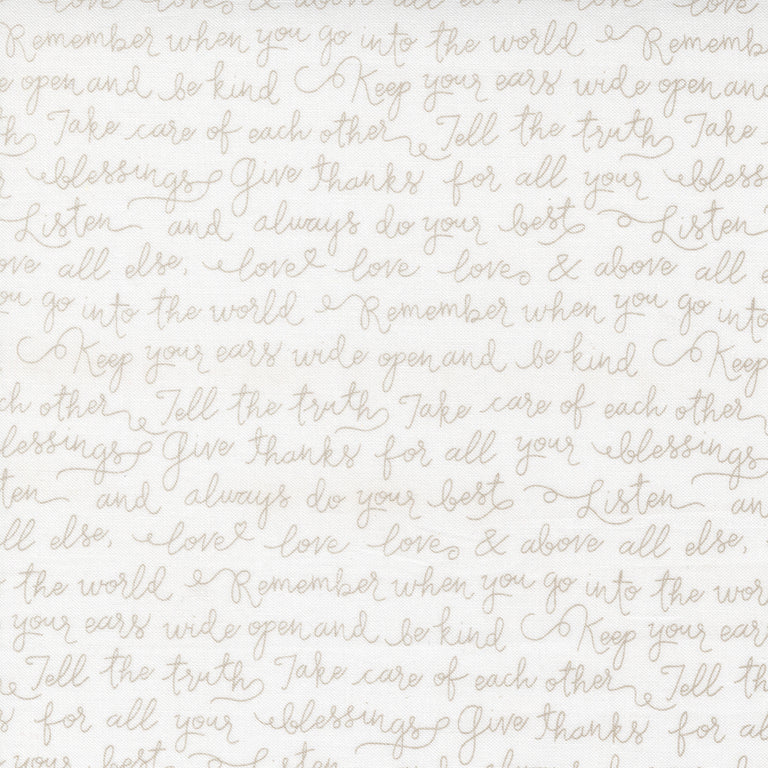 love love & above all else, love love
Remember when you go into the world Rememb
e open and be kind Keep your ears wide open and
th Take care of each other Tell the truth Take
r blessings Give thanks for all your bless
Listen and always do your best Listen
ove all else, love love love & above all e
ou go into the world Remember when you go into
Keep your ears wide open and be kind Keep
ch other Tell the truth Take care of each other
lessings Give thanks for all your blessings
ten and always do your best Listen an
ll else, love love love & above all else,
the world Remember when you go into the wor
your ears wide open and be kind Keep your ear
Tell the truth Take care of each other Tell th
s for all your blessings Give thanks for al
your best Listen and always do your